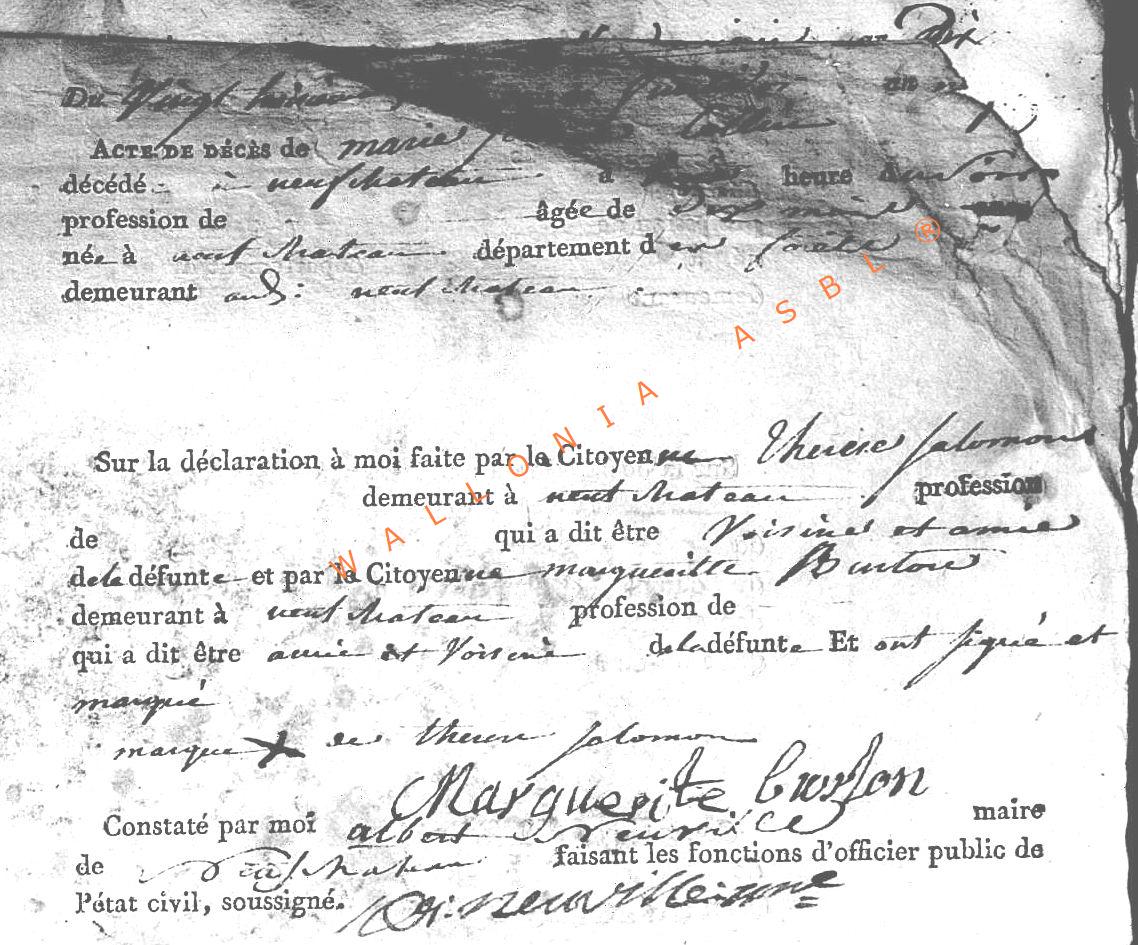 Dix
Du Vingt huit
ACTE DE DÉCÈS de marie
décédé à neufchateau à heure du Soir
profession de âgée de
née à neufchateau département des forêts
demeurant aud: neufchateau
Sur la déclaration à moi faite par la Citoyenne therese Salomon
demeurant à neufchateau profession
de qui a dit être Voisine et amie
de la défunte et par la Citoyenne margueritte Burton
demeurant à neufchateau profession de
qui a dit être amie et Voisine de la défunte Et ont signé et
marqué
marque X de therese Salomon
Marguerite burton
Constaté par moi albert Neuville maire
de Neufchateau faisant les fonctions d'officier public de
l'état civil, soussigné.
WALLONIA ASBL ®